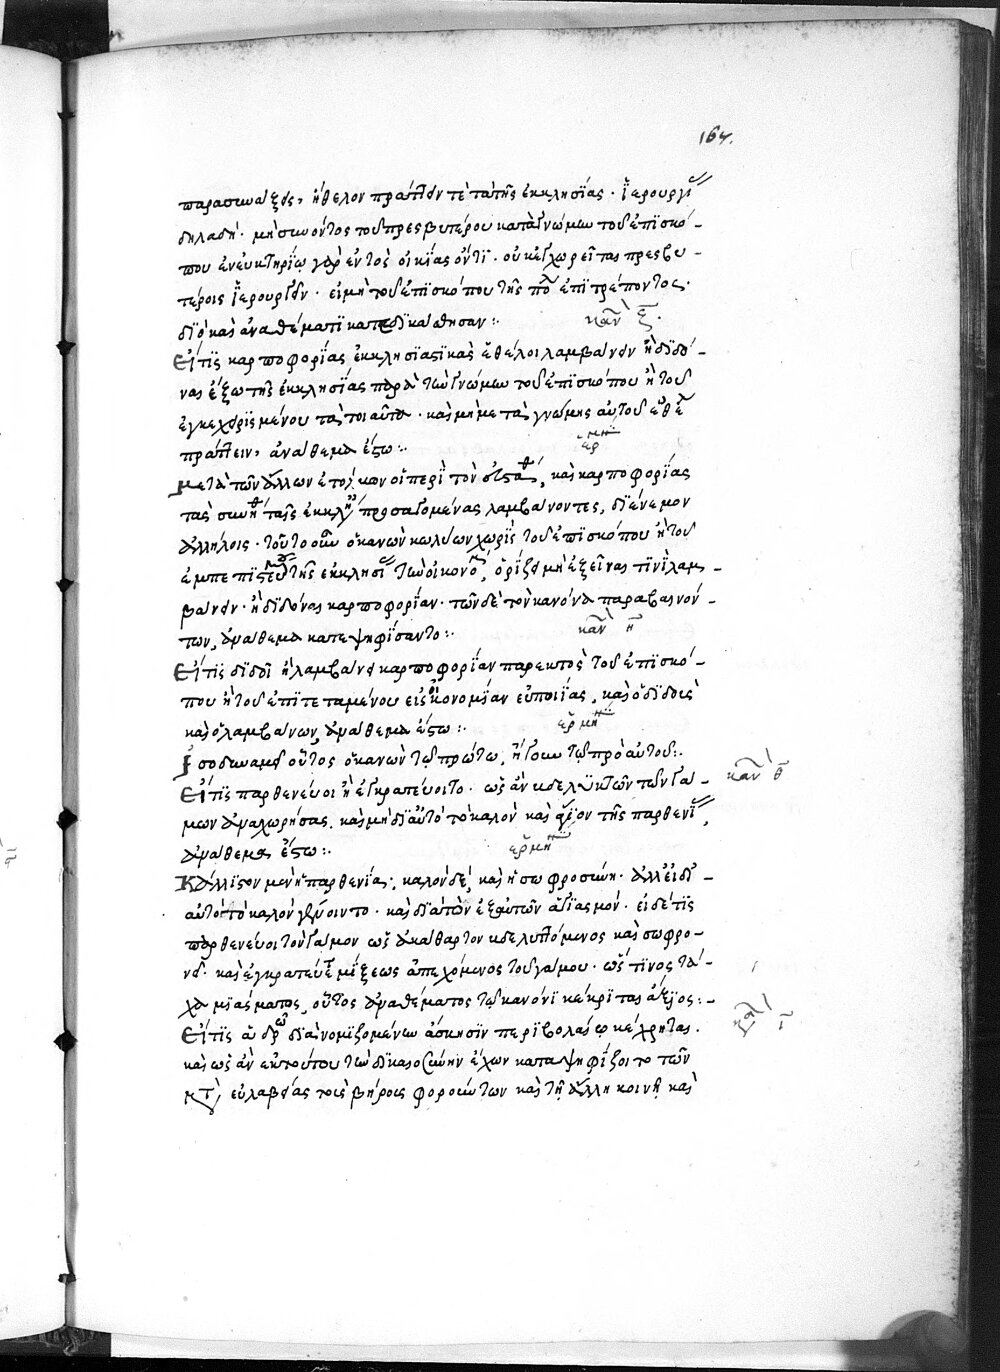 164.
παρασυνάξεις, ἤθελον πράττειν τὲ τὰ τῆς ἐκκλησίας · ἱερουργί
δηλαδή · μὴ συνόντος τοῦ πρεσβυτέρου κατὰ γνώμην τοῦ ἐπισκό-
που ἐν εὐκτηρίῳ γὰρ ἐντὸς οἰκίας ὄντι · οὐκ ἐγχωρεῖται πρεσβυ-
τέροις ἱερουργεῖν · εἰ μὴ τοῦ ἐπισκόπου τῆς ἐπιτρέποντος ·
διὸ καὶ ἀναθέματι κατεδικαιώθησαν :·
καν
Εἴ τις καρποφορίας ἐκκλησιαστικὰς ἐθέλοι λαμβάνειν ἢ διδό-
ναι ἔξω τῆς ἐκκλησίας παρὰ τὴν γνώμην τοῦ ἐπισκόπου ἢ τοῦ
ἐγκεχειρισμένου τὰ τοιαῦτα · καὶ μὴ μετὰ γνώμης αὐτοῦ ἐθέλ
πράττειν, ἀνάθεμα ἔστω :·
ἑρμη
μετὰ τῶν ἄλλων ἐτόλμων οἱ περὶ τὸν εὐστάθ, καὶ καρποφορίας
τὰς συνήθ ταῖς ἐκκλη προσαγομένας λαμβάνοντες, διένεμον
ἀλλήλοις · τοῦτο οὖν ὁ κανὼν κωλύων χωρὶς τοῦ ἐπισκόπου ἢ τοῦ
ἐμπεπιστευ τῆς ἐκκλησί τὴν οἰκονο, ὁρίζει μὴ ἐξεῖναι τινὶ λαμ-
βάνειν · ἢ διδόναι καρποφορίαν · τῶν δὲ τὸν κανόνα παραβαινόν-
των, ἀνάθεμα κατεψηφίσαντο :·
καν η
Εἴ τις διδοῖ ἢ λαμβάνει καρποφορίαν παρεκτὸς τοῦ ἐπισκό-
που ἢ τοῦ ἐπιτεταμένου εἰς οἰκονομίαν εὐποιίας, καὶ ὁ διδοὺς
καὶ ὁ λαμβάνων, ἀνάθεμα ἔστω :·
ἑρμη
Ἰσοδυναμεῖ οὗτος ὁ κανὼν τῷ πρώτῳ, ἤγουν τῷ πρὸ αὐτοῦ :·
καν θ
Εἴ τις παρθενεύοι ἢ ἐγκρατεύοιτο · ὡς ἂν βδελυκτῶν τῶν γά-
μων ἀναχωρήσας, καὶ μὴ δι' αὐτὸ τὸ καλὸν καὶ ἅγιον τῆς παρθενί,
ἀνάθεμα ἔστω :·
ἑρμη
Κάλλιστον μὲν ἡ παρθενία, καλὸν δὲ, καὶ ἡ σωφροσύνη · ἀλλ' εἰ δι'
αὐτὸ τὸ καλὸν γένοιντο · καὶ διὰ τὸν ἐξ αὐτῶν ἁγιασμόν · εἰ δέ τις
παρθενεύοι τὸν γάμον ὡς ἀκάθαρτον βδελυττόμενος καὶ σωφρο-
νεῖ · καὶ ἐγκρατεύε μίξεως ἀπεχόμενος τοῦ γάμου · ὥς τινος τά-
χα μιάσματος, οὗτος ἀναθέματος τῷ κανόνι κέκριται ἄξιος :-
καν ι
Εἴ τις ἀνδρῶ διὰ νομιζομένην ἄσκησιν περιβολαίῳ κέχρηται.
καὶ ὡς ἂν ἐκ τούτου τὴν δικαιοσύνην ἔχων καταψηφίζοιτο τῶν
μετ' εὐλαβείας τοὺς βήρους φορούντων καὶ τῇ ἄλλῃ κοινῇ καὶ